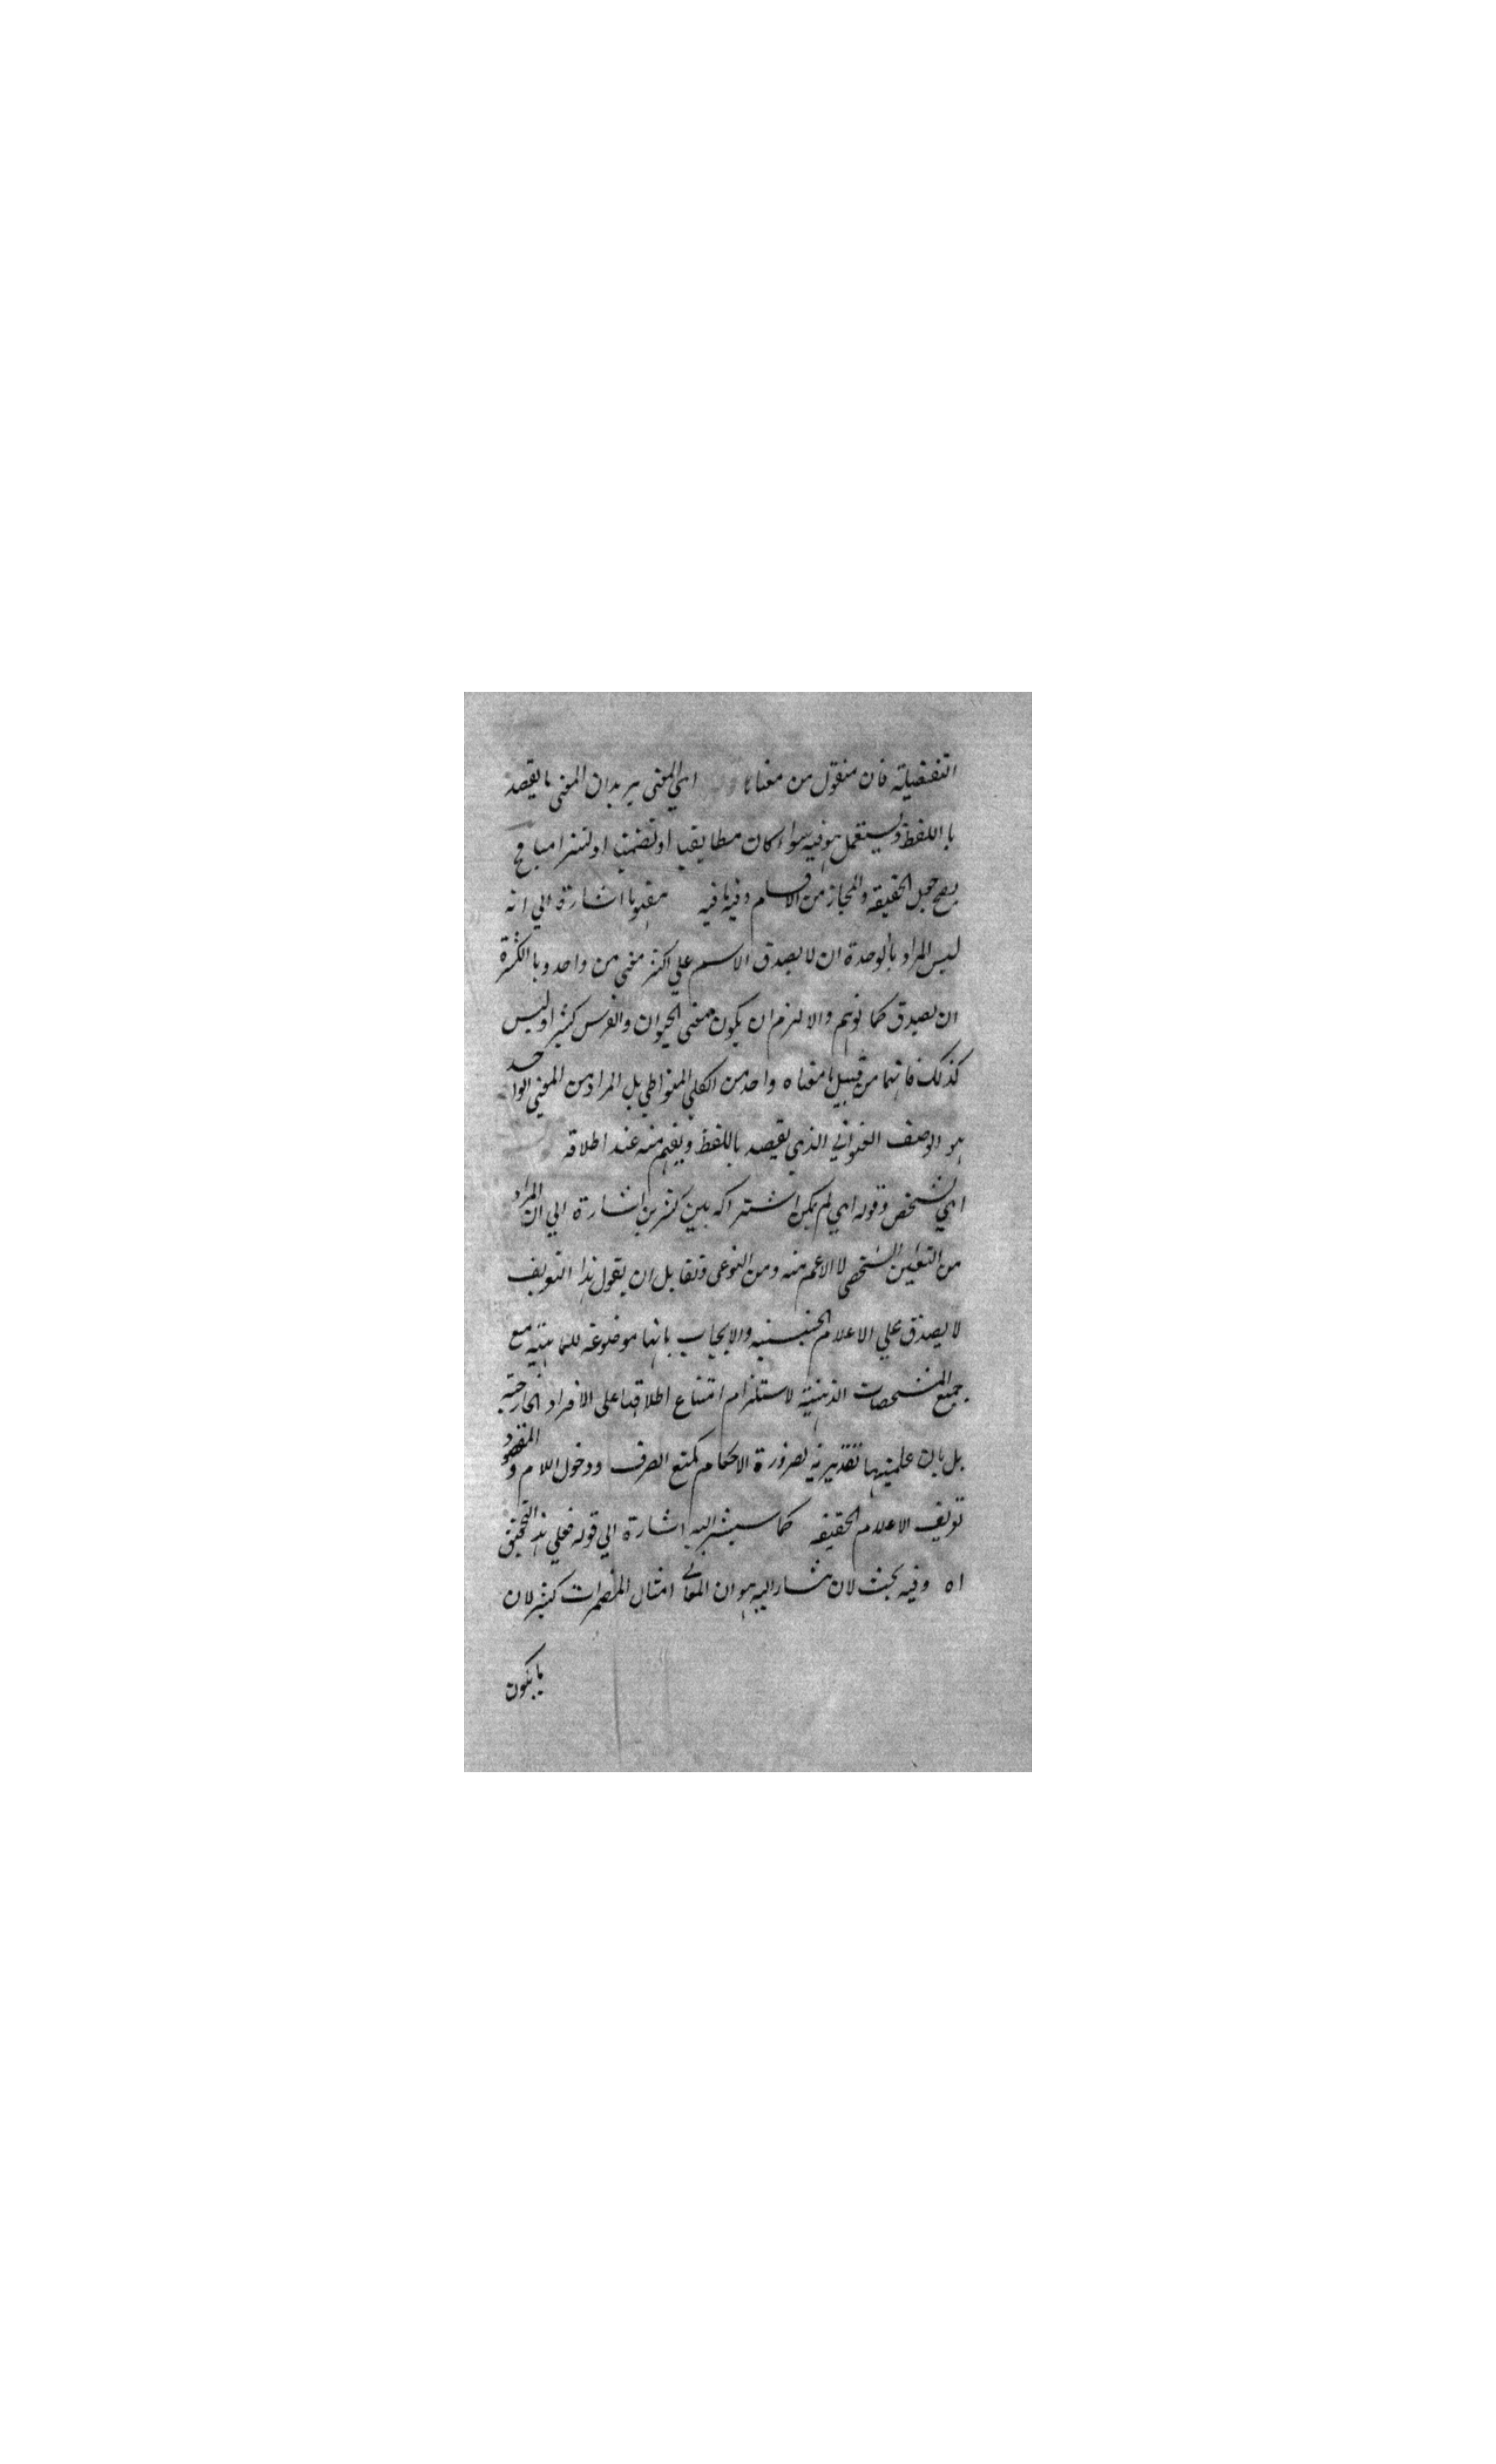 التفضيلية فان منقول من معناها اي المعنى يريد ان المعنى ما يقصد
باللفظ ويستعمل هو فيه سواء كان مطابقيا او تضمنيا او التزاميا فح
يصح جعل الحقيقة والمجاز من الاقسام وفيه ما فيه مفهوما اشارة الي انه
ليس المراد بالوحدة ان لا يصدق الاسم علي اكثر معنى من واحد وبالكثرة
ان يصدق كما توهم والا لزم ان يكون معنى الحيوان والفرس كثيرا وليس
كذلك فانهما من قبيل ما معناه واحد من الكلي المتواطي بل المراد من المعنى الواحد
هو الوصف العنواني الذي يقصد باللفظ ويفهم منه عند اطلاقه
اي تشخص وقوله اي لم يكن اشتراكه بين كثيرين اشارة الي ان المراد
من التعين الشخصي لا الاعم منه ومن النوعي ولقائل ان يقول هذا التعريف
لا يصدق علي الاعلام الجنسية والايجاب بانها موضوعة للماهية مع
جميع المشخصات الذهنية لاستلزام امتناع اطلاقها على الافراد الخارجية
بل بان علميتها تقديرية لضرورة الاحكام كمنع الصرف ودخول اللام والمقصود
تعريف الاعلام الحقيقة كما سيشير اليه اشارة الي قوله فعلي هذا التحقيق
اه وفيه بحث لان مشار اليه هو ان المعاني امثال المضمرات كثير لان
ما يكون